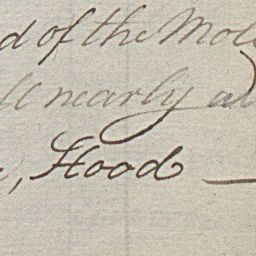 d of the Mol
ll nearly a
, Hood —